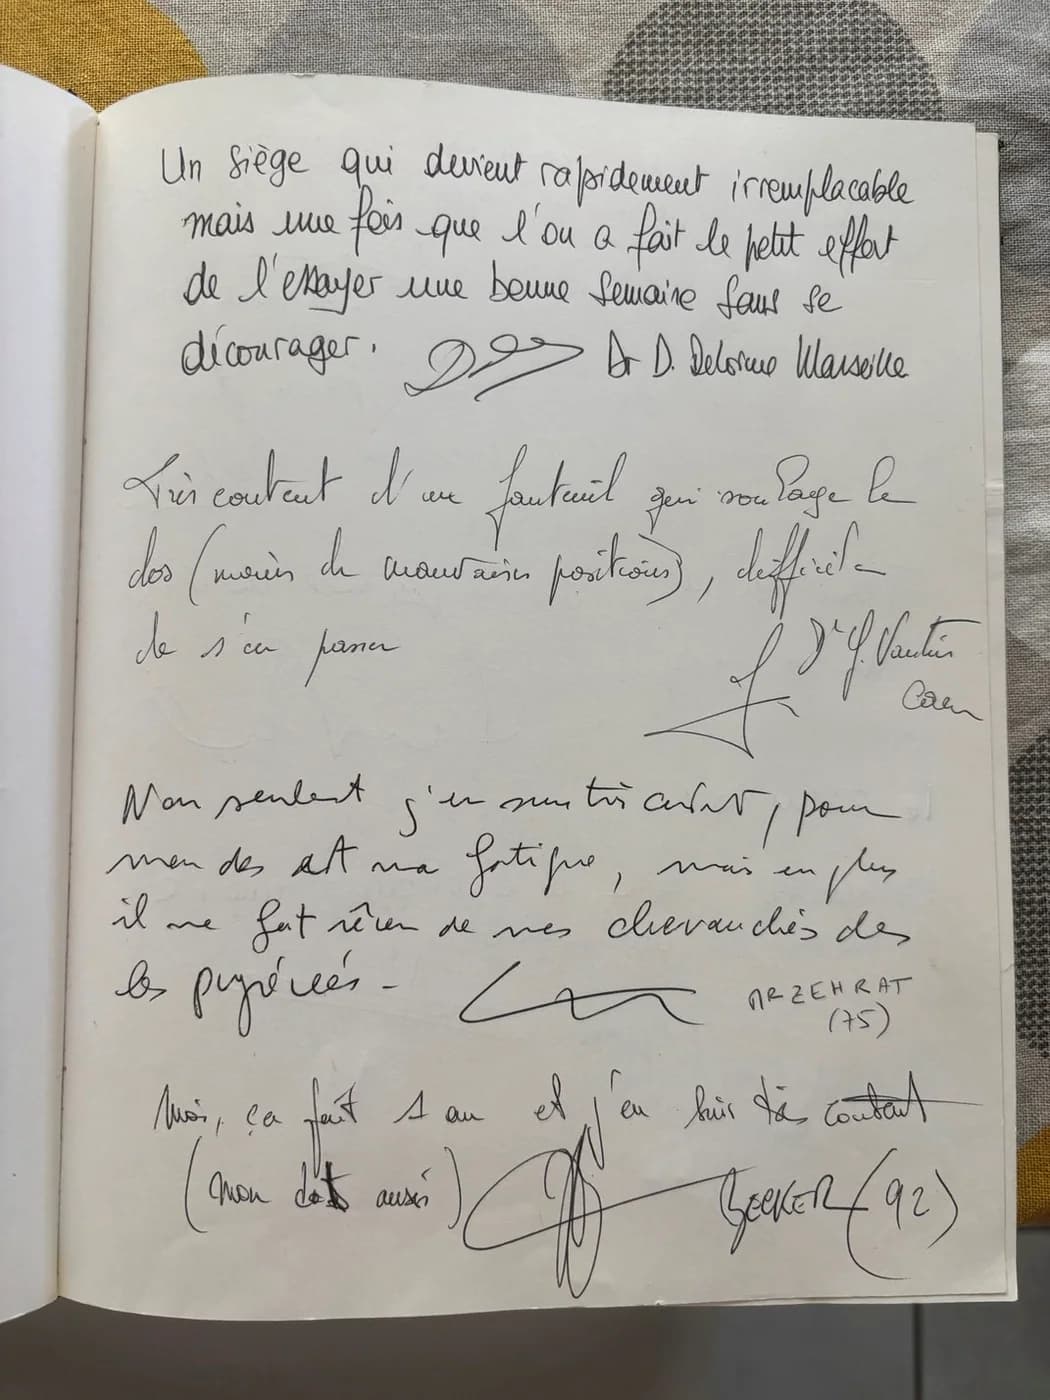 Un siège qui devient rapidement irremplacable
mais une fois que l'on a fait le petit effort
de l'essayer une bonne semaine sans se
décourager. Dr D. Delorme Marseille
Très content d'un fauteuil qui soulage le
dos (moins de mauvaises positions), difficile
de s'en passer
Dr Y. Vautier
Caen
Non seulent j'en suis très content, pour
mon dos et ma fatigue, mais en plus
il me fait rêver de mes chevauchés des
les pyrénées - ARZEHRAT
(75)
Moi, ça fait 1 an et j'en suis très content
(mon dos aussi) BECKER (92)